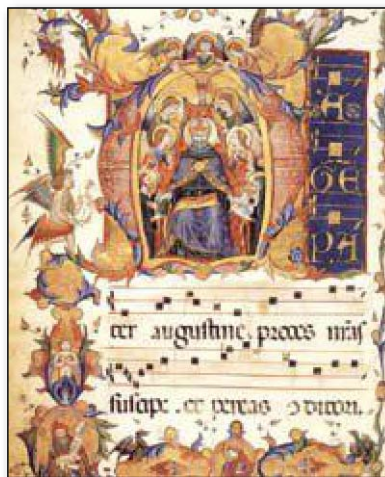 M
A
PA
ter augustine preces nr̄as
suscipe . et per eas ɔditori.